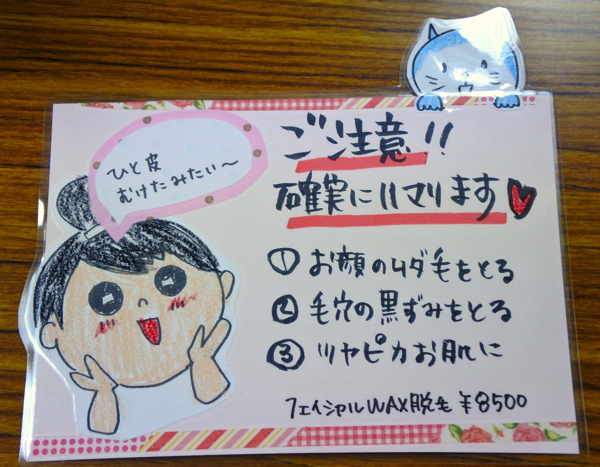 ひと皮
むけたみたい〜
ご注意!!
確実にハマります
① お顔のムダ毛をとる
② 毛穴の黒ずみをとる
③ ツヤピカお肌に
フェイシャルWAX脱毛 ¥8500